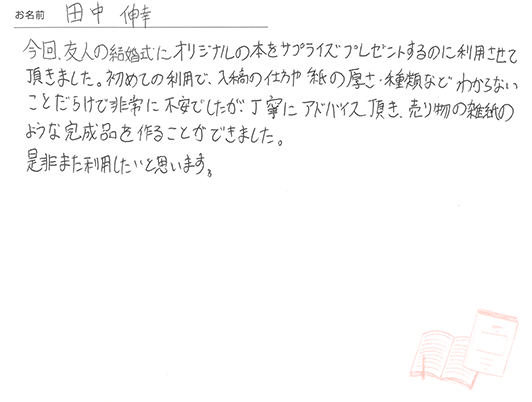 お名前 田中 伸幸
今回、友人の結婚式にオリジナルの本をサプライズプレゼントするのに利用させて
頂きました。初めての利用で、入稿の仕方や紙の厚さ・種類などわからない
ことだらけで非常に不安でしたが、丁寧にアドバイス頂き、売り物の雑紙の
ような完成品を作ることができました。
是非また利用したいと思います。